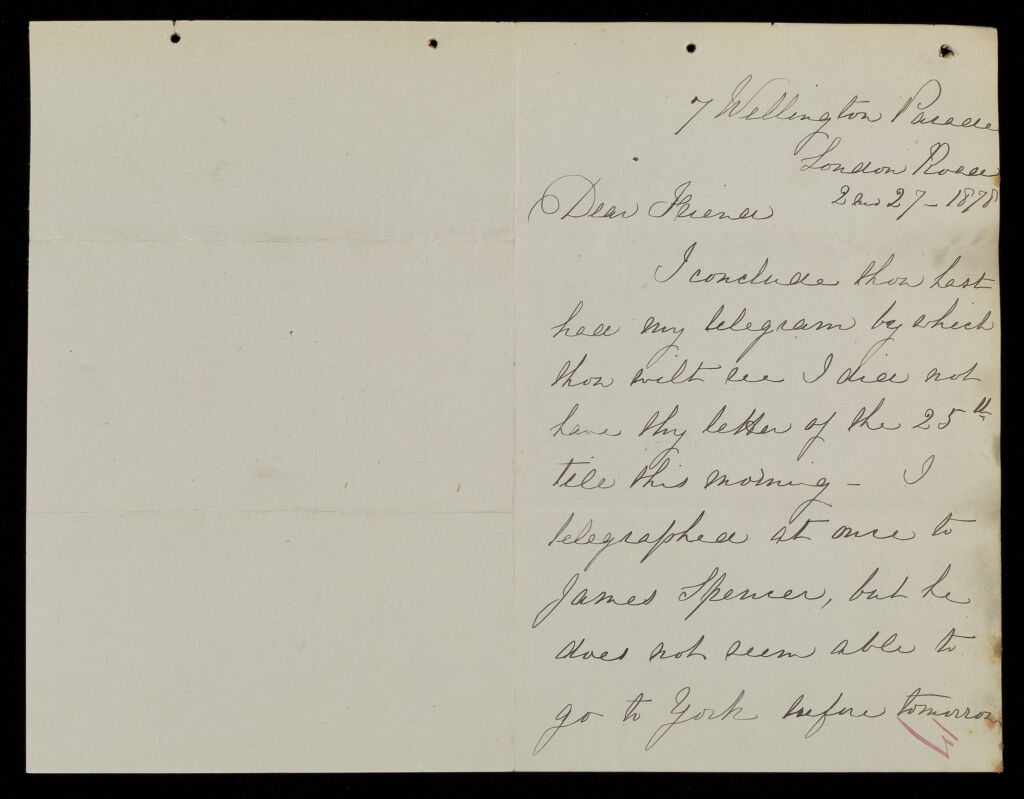 7 Wellington Parade
London Road
27 - 1878
Dear Friend
I conclude thou hast
had my telegram by which
thou wilt see I did not
have thy letter of the 25th
till this morning - I
telegraphed at once to
James Spencer, but he
does not seem able to
go to York before tomorrow